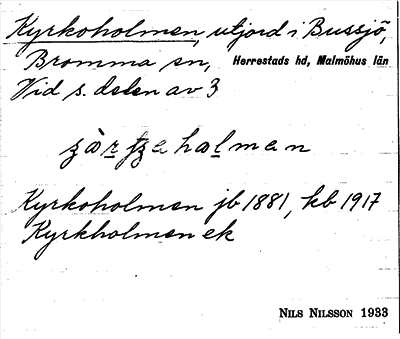 Kyrkoholmen, utjord i Bussjö,
Bromma sn, Herrestads hd, Malmöhus län
Vid s. delen av 3
Kyrkoholmen jb 1881, kb 1917
Kyrkholmen ek
NILS NILSSON 1933